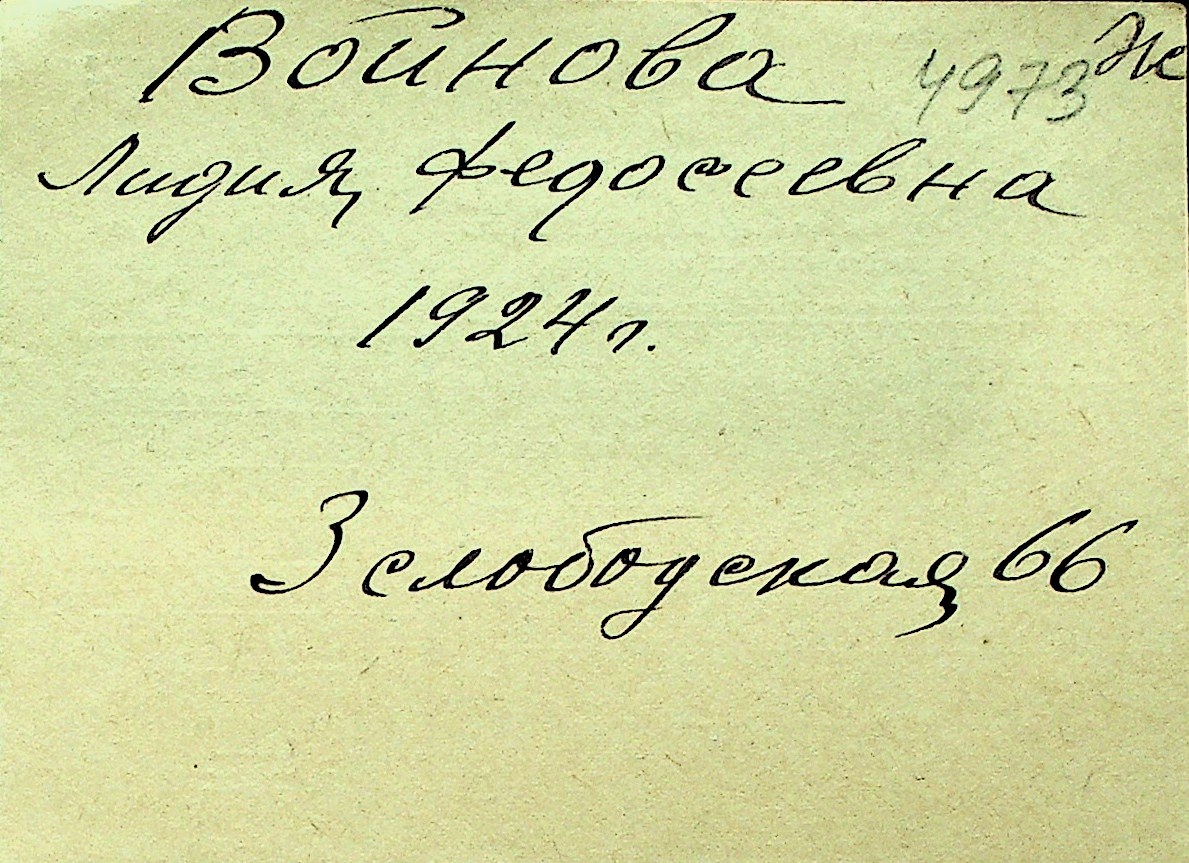 Войнова 4973 Ж
Лидия, Федосеевна
1924 г.
3 слободская 66